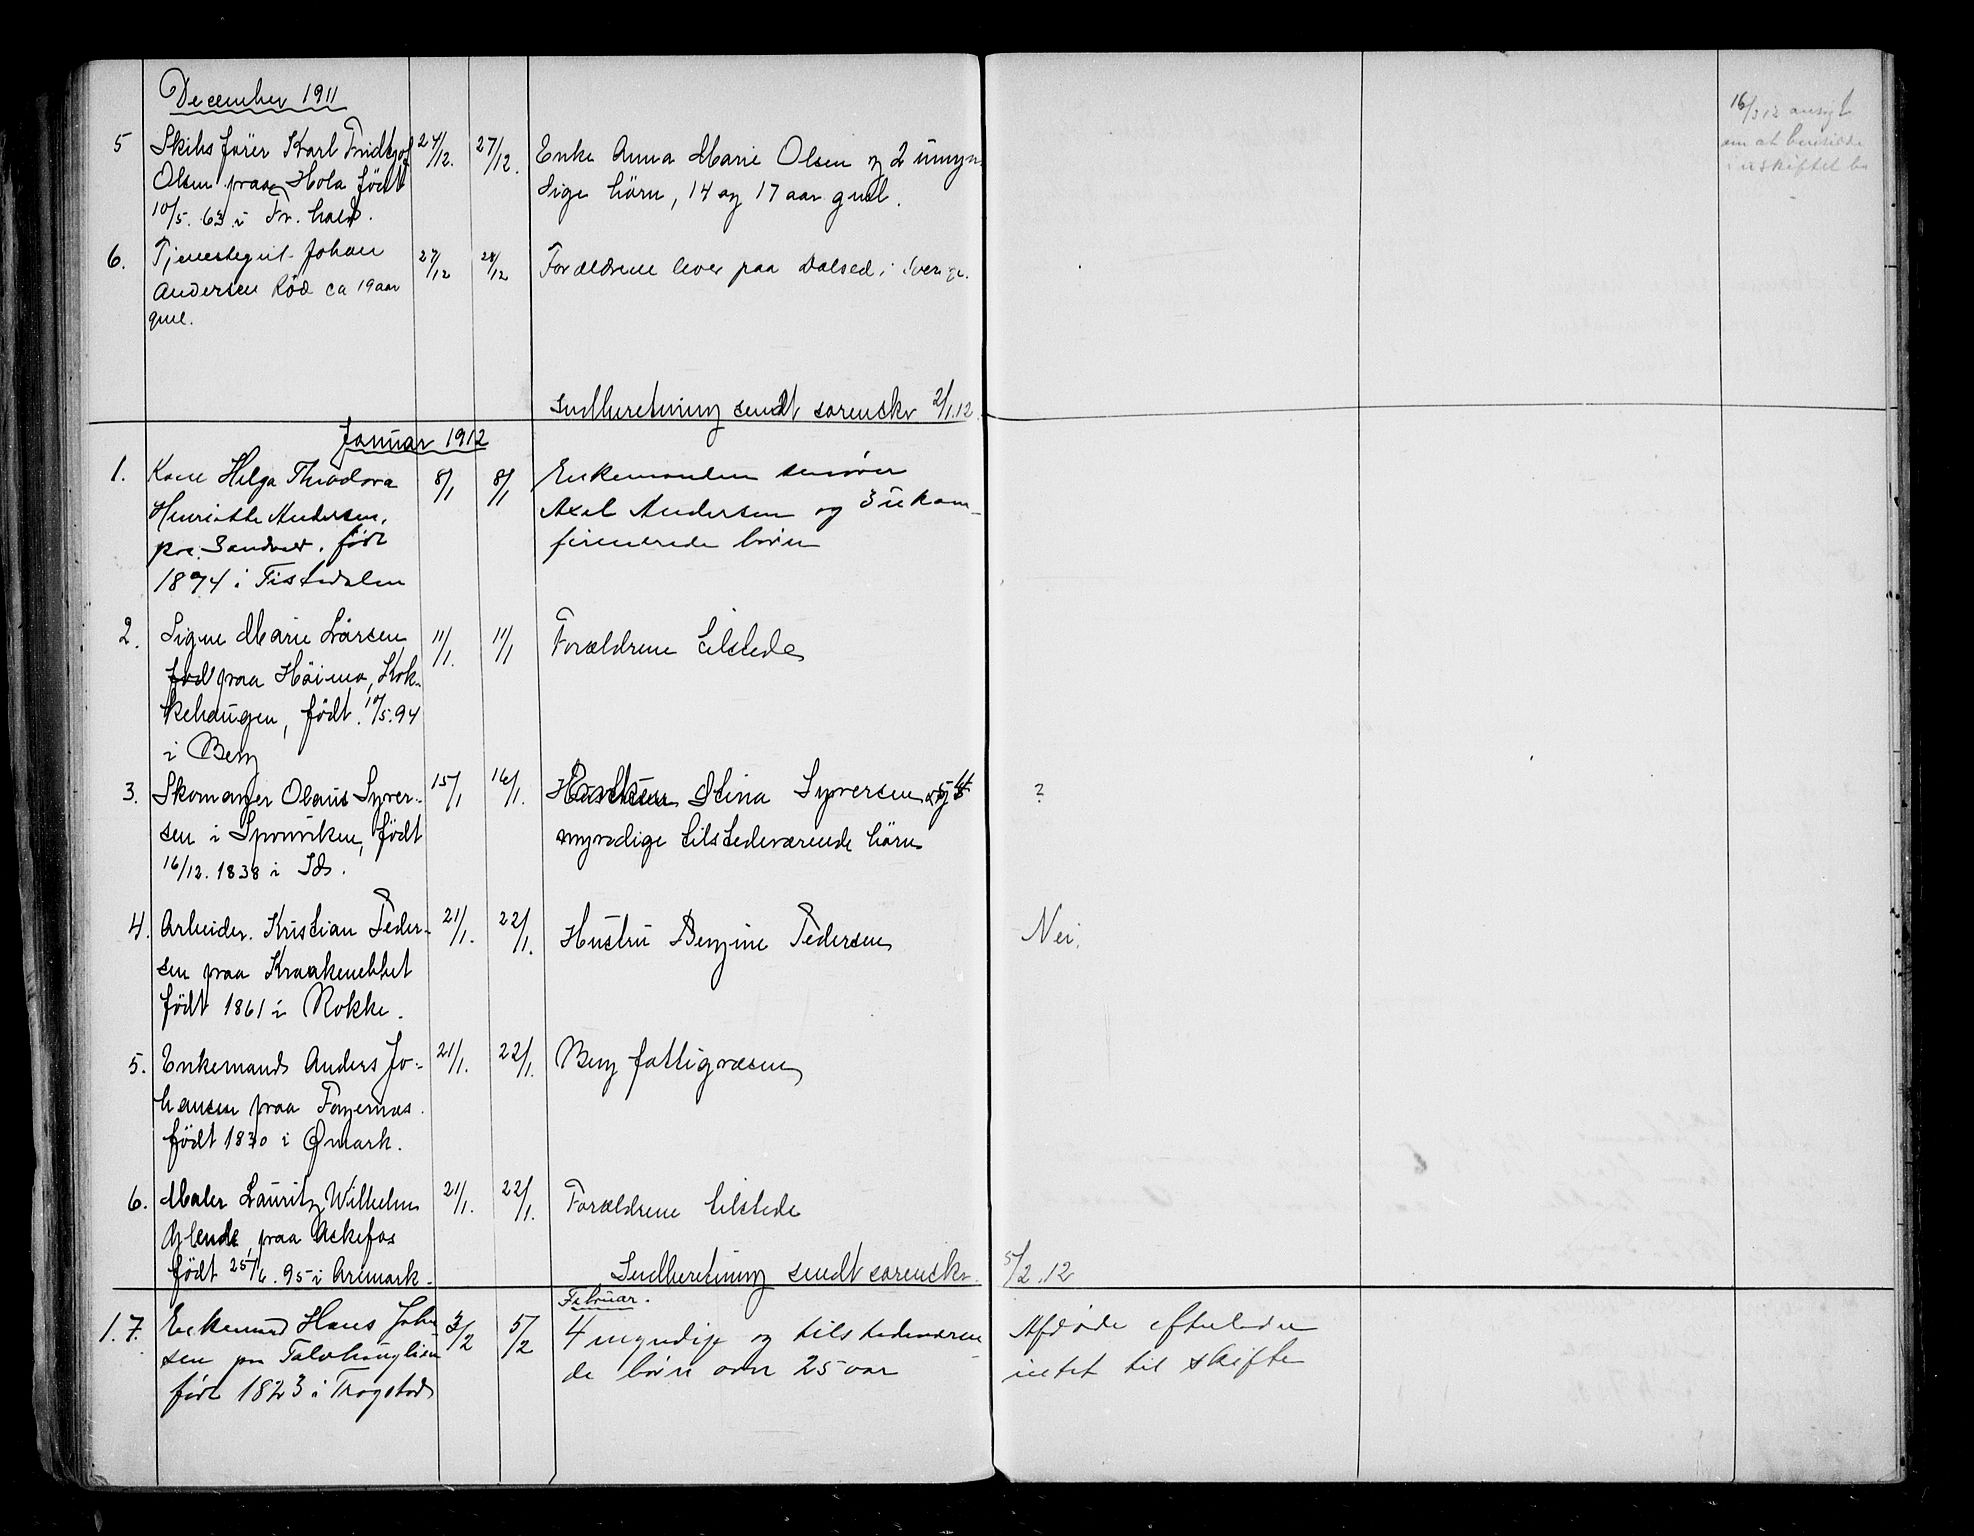 December 1911
5 Skibsfører Karl Fridtjof 24/12. 27/12. Enke Anna Marie Olsen og 2 umyn-
Olsen paa Hola født dige børn, 14 og 17 aar gml.
10/5. 63 i Fr. hald.
6. Tjenestegut Johan 27/12 28/12 Forældrene lever paa Dalsed i Sverige.
Andersen Rød ca 19 aar
gml.
Indberetning sendt sorenskr 2/1.12.
Januar 1912
1. Kone Helga Theodora 8/1 8/1 Enkemanden
Henriette Andersen, Axel Andersen og 3 ukon-
paa Sandved. født firmerede børn
1874 i Tistedalen
2. Signe Marie Larsen 11/1. 11/1 Forældrene tilstede
fød paa Høimo, Kok-
kehaugen, født 10/5.94
i Berg
3. Skomager Olaus Syver- 15/1 16/1. Stina Syversen og ?
sen i Sponviken, født myndige tilstedeværende børn
16/12. 1838 i Id.
4. Arbeider Kristian Peder- 21/1. 22/1. Hustru Bergine Pedersen Nei.
sen paa
født 1861 i Rokke.
5. Enkemand Anders Jo- 21/1. 22/1. Berg fattigvæsen
hansen paa Fagernæs.
født 1830 i Ømark.
6. Maler Lauritz Wilhelm 21/1. 22/1. Forældrene tilstede
paa Askefos
født 25/6. 95 i Aremark.
Indberetning sendt sorenskr. 5/2.12
Februar.
1. 7. Enkemand Hans Johan- 3/2 5/2 4 myndige og tilstedeværen- Afdøde efterlader
sen paa født 1823 i Trøgstad de børn over 25 aar intet til skifte
16/3 12 ansøgt
om at besidde
i uskiftet bo